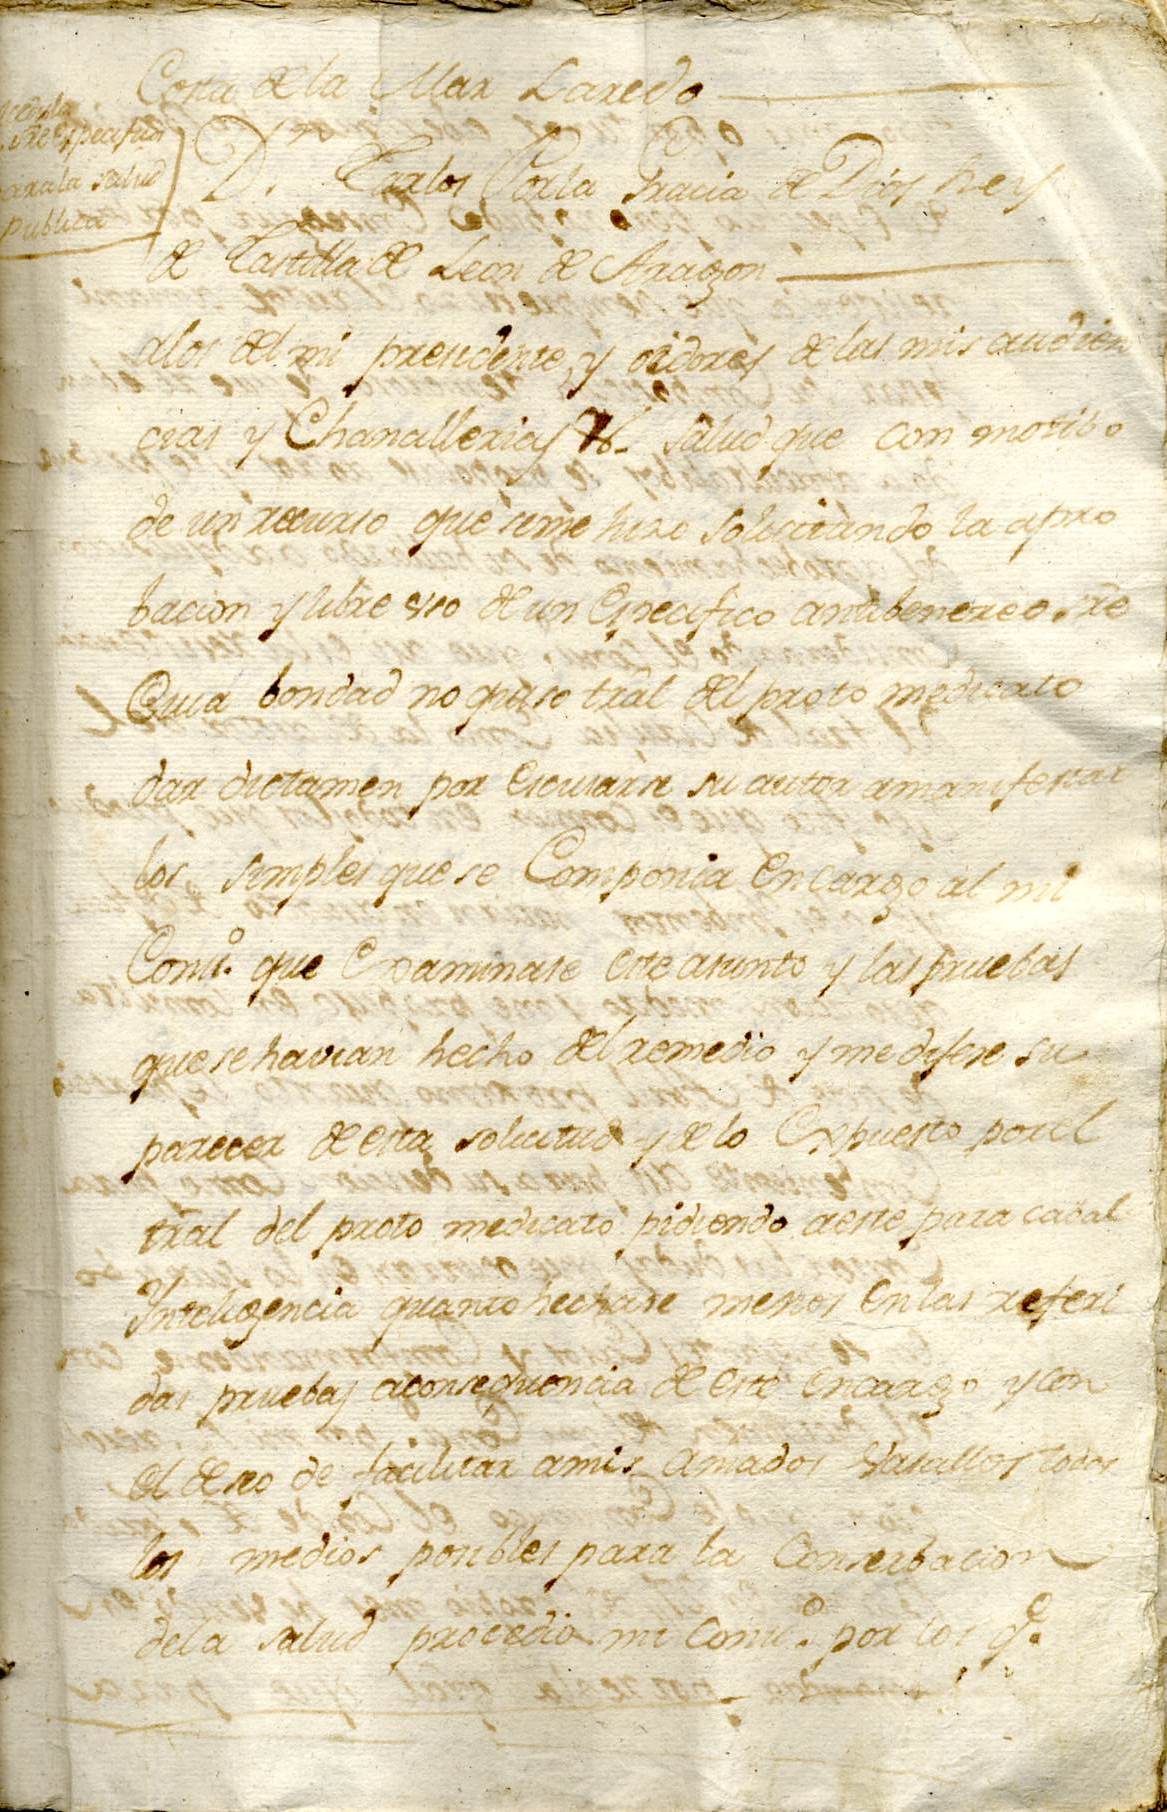 Costa de la Mar Laredo
sre especifico
para la salud
publica
D.n Carlos Por la Gracia de Dios Rey
de Castilla de Leon de Aragon
a los del mi presidente, y oidores de las mis audien
cias y Chanallerias salud que con motibo
de un recurso que se me hizo solicitando la apro
bacion y libre uso de un Especifico antibenereo, sre
Cuia bondad no quiso tral del proto medicato
dar dictamen por escusarse su autor a manifestar
los simples que se Componia Encargo al mi
Cons.o que Examinase este asunto y las pruebas
que se havian hecho del remedio y me dijese su
parecer de esta solicitud y de lo Expuesto por el
tral del proto medicato pidiendo a este para cabal
Inteligencia quanto hechase menos En las referi
das pruebas a consequencia de este encargo y con
el deseo de facilitar a mis amados Vasallos todos
los medios posibles para la Conserbacion
de la salud procedio mi Cons.o por los q.e